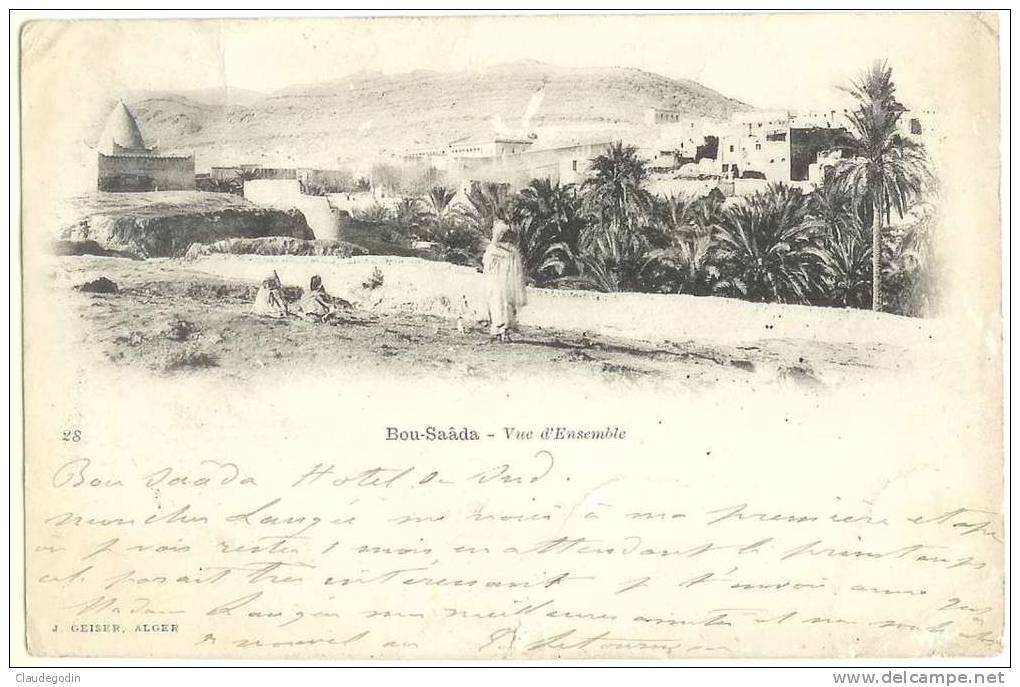 28
Bou-Saâda - Vue d'Ensemble
Bou Saâda Hotel du Sud.
mon cher Langée me voici à ma première etape
ou j vais rester 1 mois en attendant le printemps
cela parait très intéressant j t'envoie ainsi qu'à
Madame Langée mes meilleures amitiés et
nouvel an
J. GEISER, ALGER
Claudegodin
www.delcampe.net